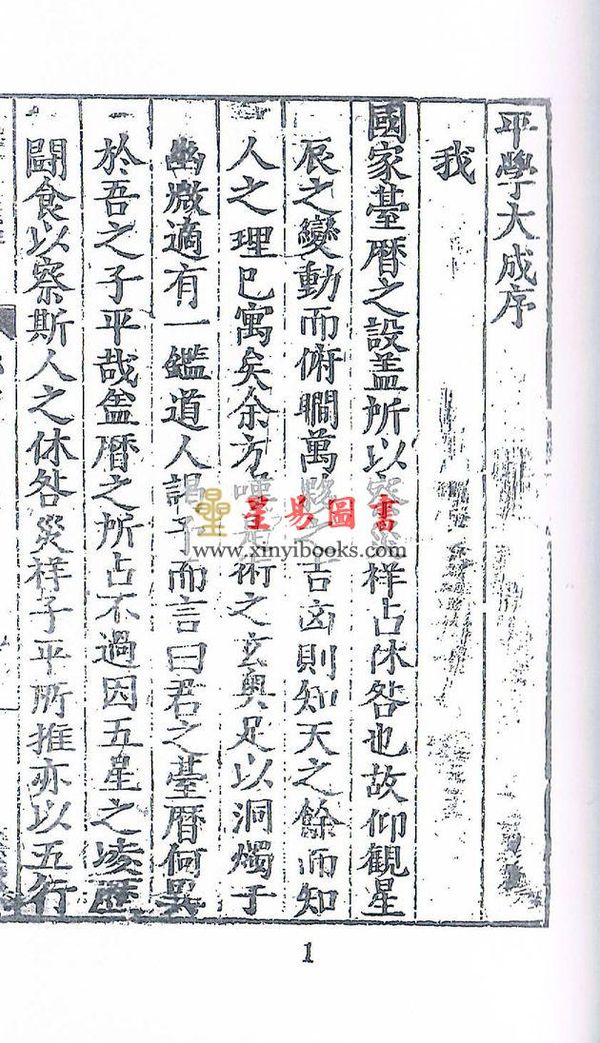 平學大成序
我
國家臺曆之設盖所以祥占休咎也故仰觀星
辰之變動而俯瞷萬之吉凶則知天之餘而知
人之理已寓矣余方術之玄奥足以洞燭于
幽微適有一鑑道人謁予而言曰君之臺曆何異
於吾之子平哉盆曆之所占不過因五星之凌歷
鬪食以察斯人之休咎災祥子平所推亦以五行
星易圖書
www.xinyibooks.com
1